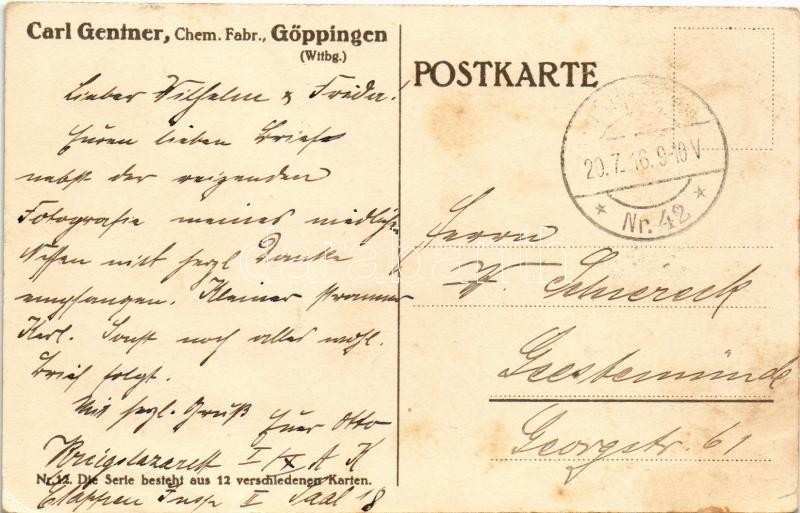 Carl Gentner, Chem. Fabr., Göppingen
(Wttbg.)
Lieber Wilhelm & Frieda!
Euren lieben Brief
nebst der reizenden
Fotografie meines niedlichen
Neffen mit herzl Danke
empfangen. Kleiner strammer
Kerl. Sonst noch alles wohl.
Brief folgt.
Mit herzl. Gruß Euer Otto
Kriegslazarett I/X A K
Nr. 12. Die Serie besteht aus 12 verschiedenen Karten.
Etappen Insp II Saal 18
POSTKARTE
20.7.16.9-10V
* Nr. 42 *
Herrn
W. Schiereck
Geestemünde
Georgstr. 61
darabanth